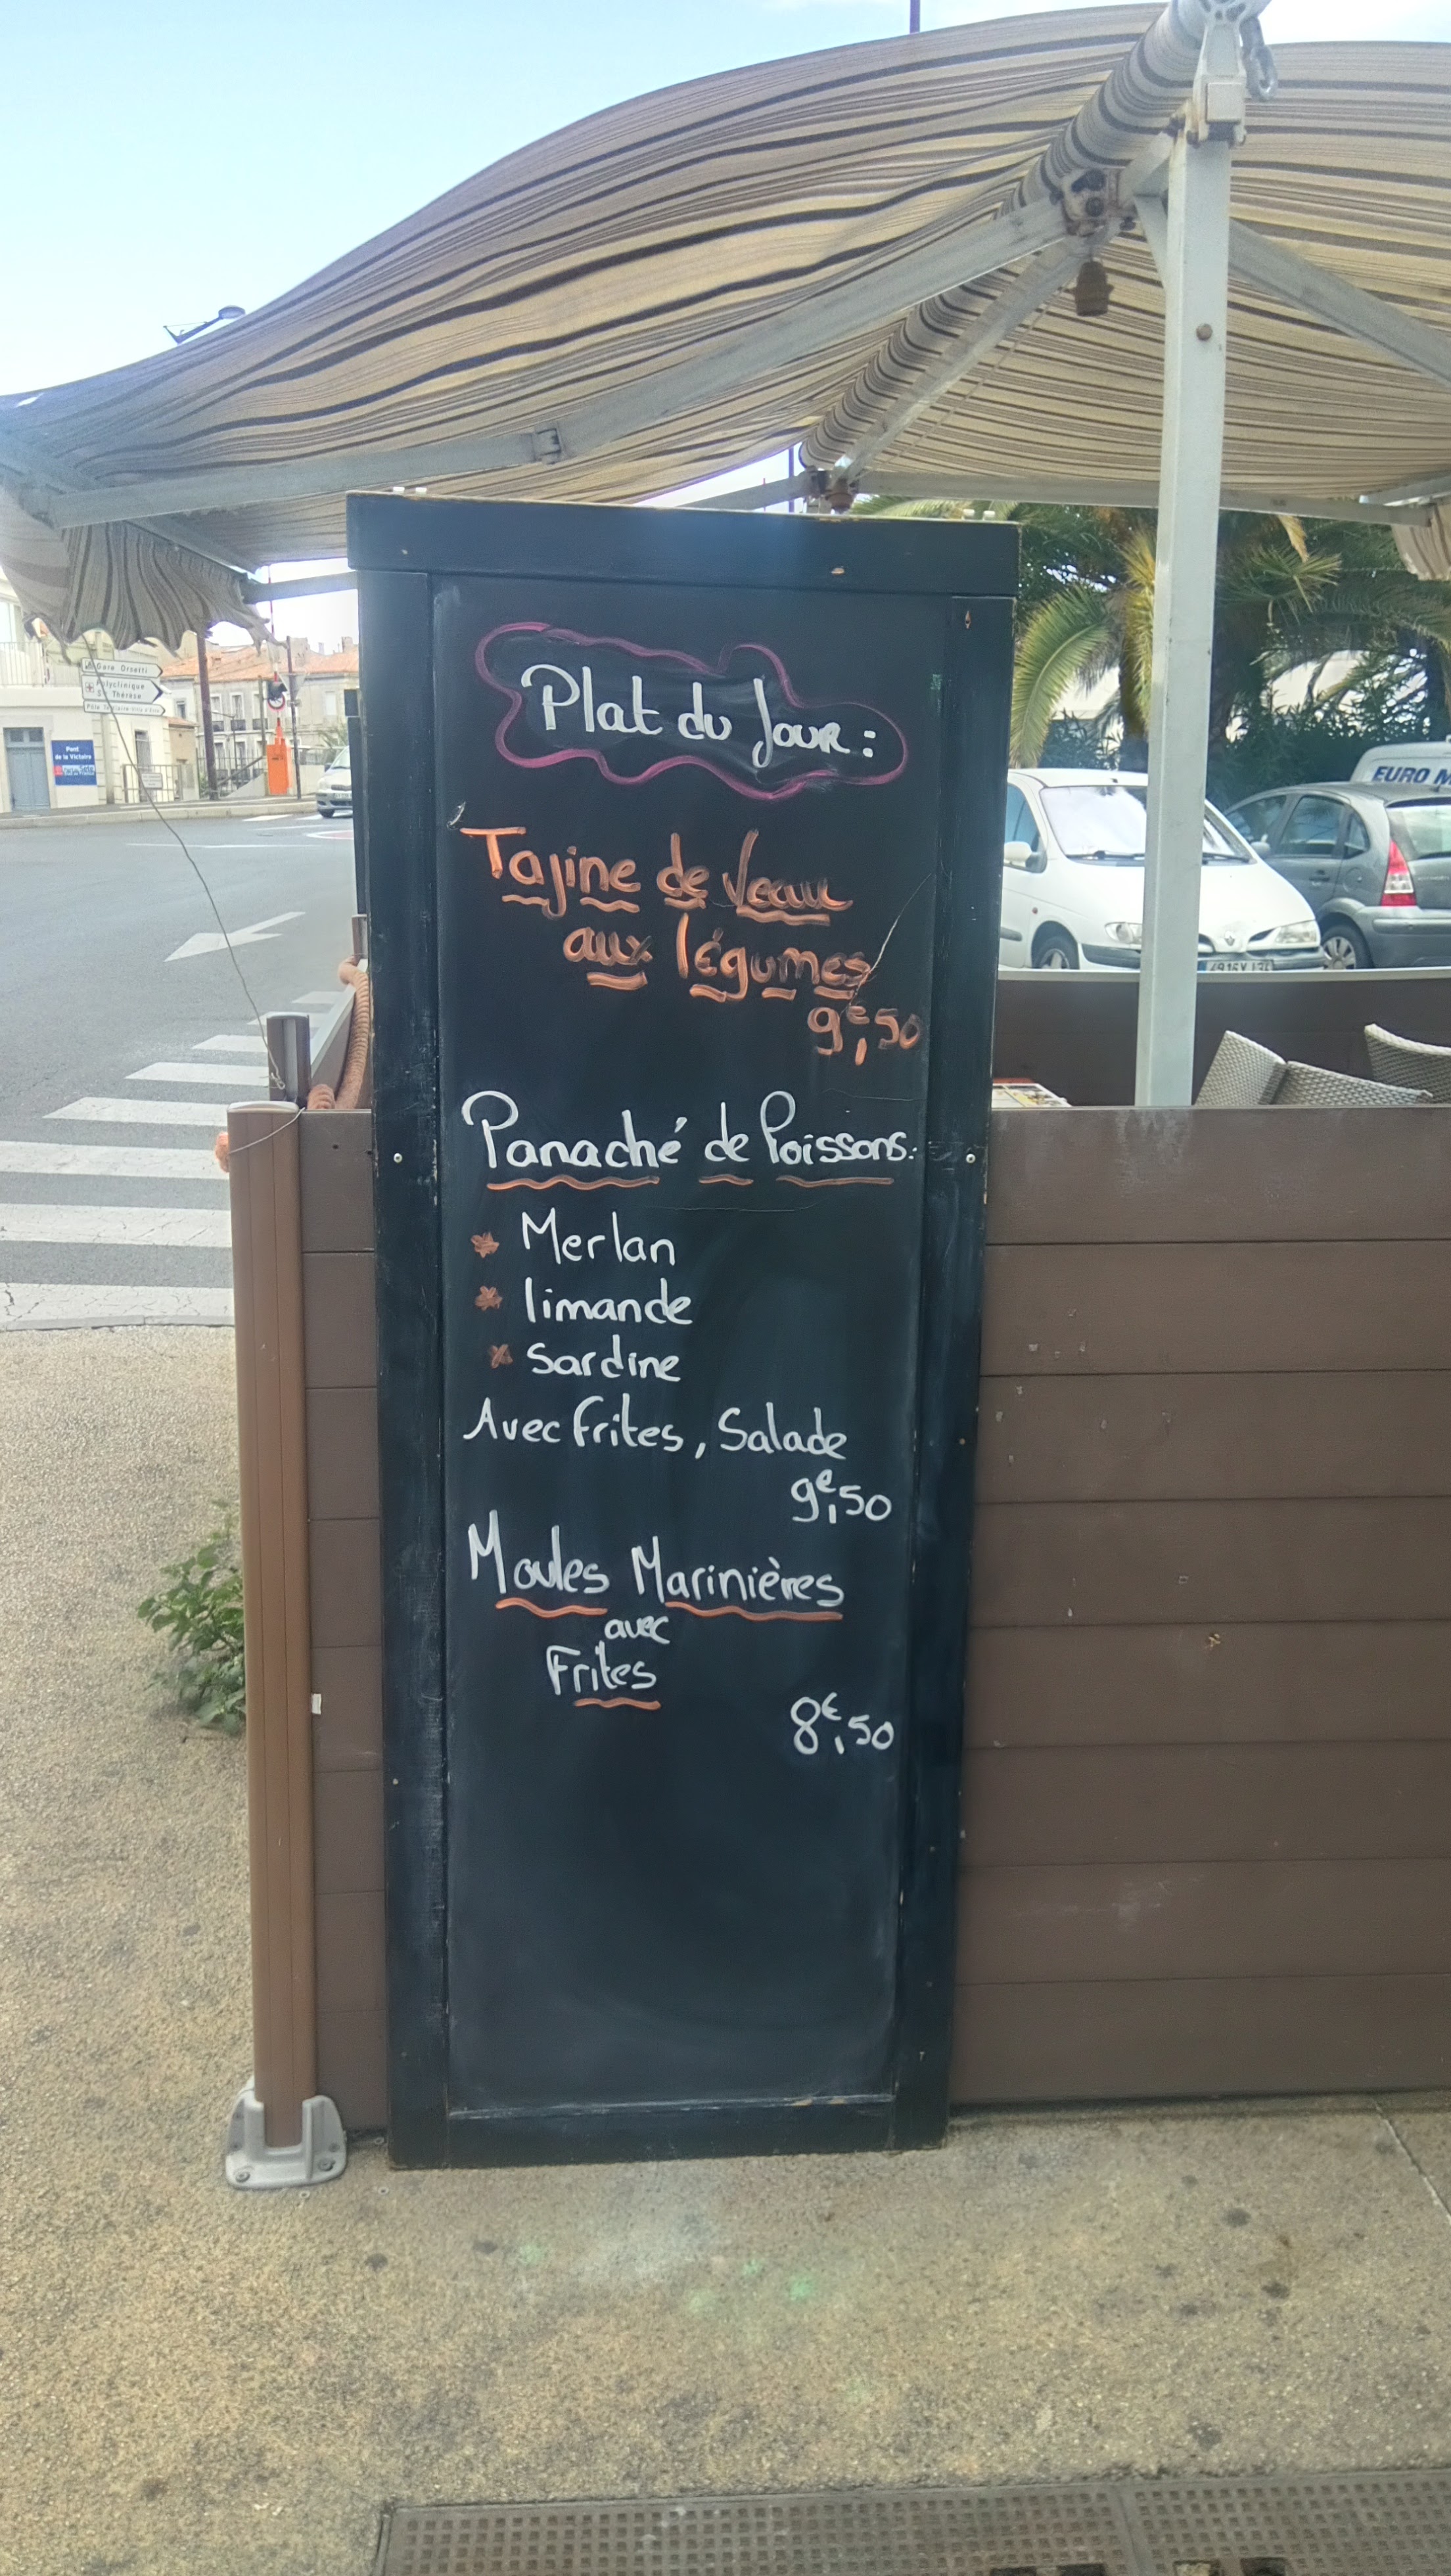 Plat du Jour :
Tajine de Veau
aux légumes
9€,50
Panaché de Poissons :
* Merlan
* limande
* Sardine
Avec Frites, Salade
9€,50
Moules Marinières
avec
Frites
8€,50
Gare Orsetti
Polyclinique
Ste Thérèse
Pont
de la Victoire
EURO M